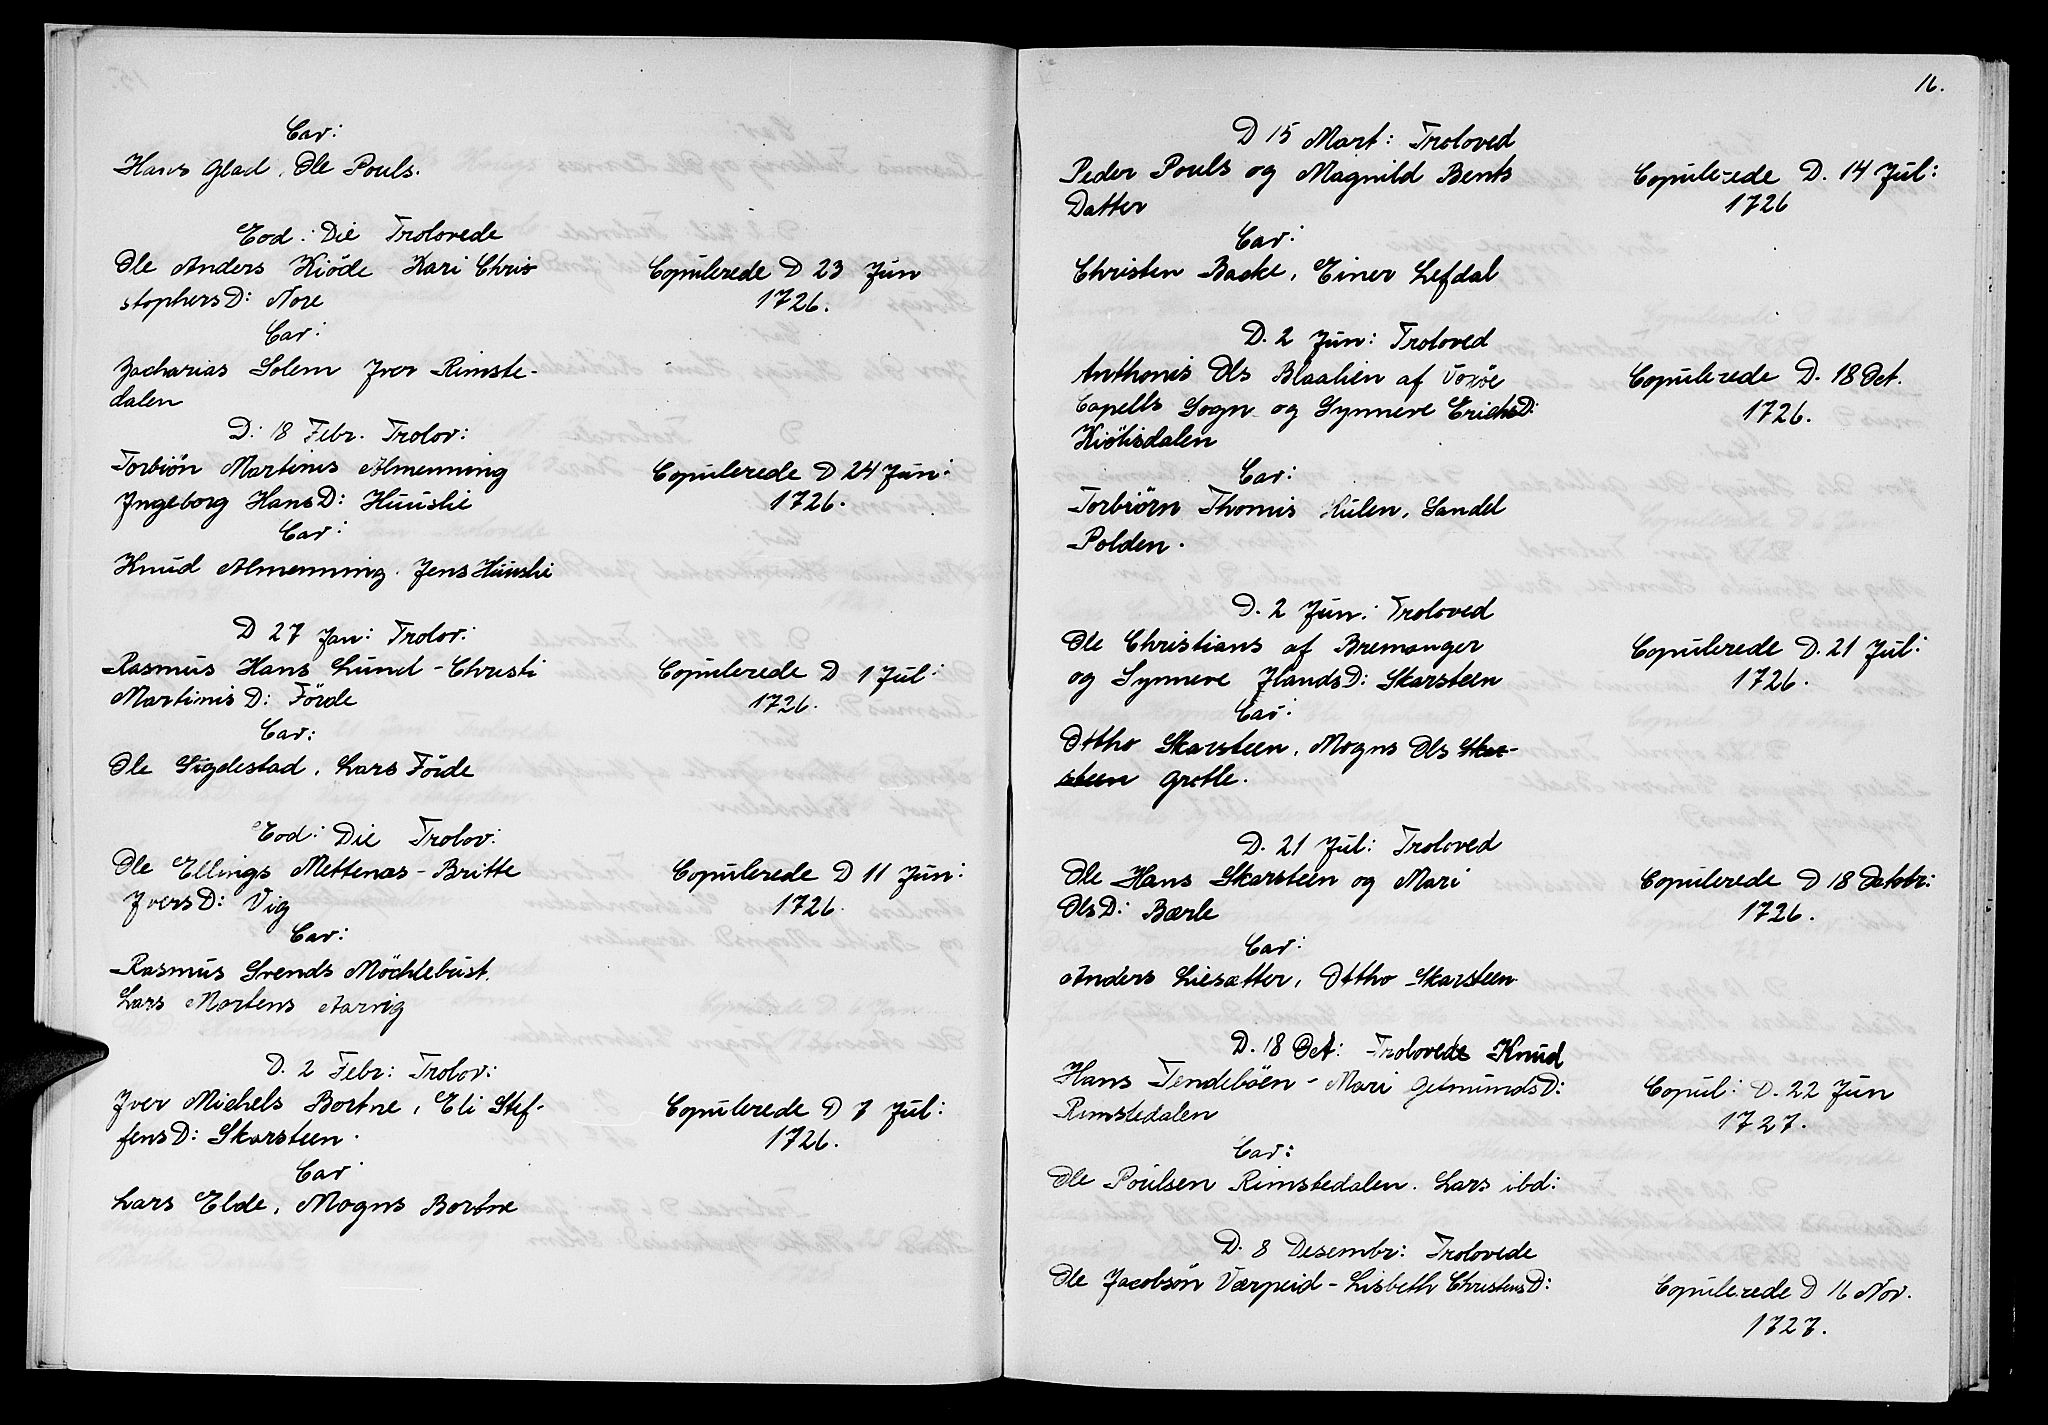 Cav:
Hans Glad, Ole Pouls.
Eod: Die Trolovede
Ole Anders Kiöde Kari Chris
stophersD: Nore
Copulerede D 23 Jun
1726.
Cav:
Zacharias Solem Jver Rimste-
dalen
D: 18 Febr. Trolov:
Torbiön Martinis Almenning
Ingeborg HansD: Huuslie
Copulerede D 24 Jun:
1726.
Cav:
Knud Almenning. Jens Huuslie
D 27 Jan: Trolov:
Rasmus Hans Lund - Christi
MartinisD: Förde
Copulerede D 1 Jul:
1726.
Cav:
Ole Sigdestad, Lars Förde
Eod: Die Trolov:
Ole Ellings Mettenæs - Britte
JversD: Vig
Copulerede D 11 Jun:
1726.
Cav:
Rasmus Svends Möchlebust.
Lars Mortens Aarvig
D. 2 Febr: Trolov:
Jver Michels Bortne, Eli Stef-
fensD: Skarsteen.
Copulerede D 7 Jul:
1726.
Cav
Lars Elde, Mogns Bortne
16.
D 15 Mart: Troloved
Peder Pouls og Magnild Bents
Datter
Copulerede D. 14 Jul:
1726
Cav:
Christen Backe, Einer Lefdal
D. 2 Jun: Troloved
Anthonis Ols Blaalien af
Capells Sogn og Synneve ErichsD:
Kiölisdalen
Copulerede D. 18 Oct.
1726.
Cav:
Torbiörn Thomis Hulen, Sandel
Polden.
D. 2 Jun: Troloved
Ole Christians af Bremanger
og Synneve JlandsD: Skarsteen
Copulerede D. 21 Jul:
1726.
Cav:
Ottho Skarsteen, Mogns Ols Skar-
steen Grotle.
D. 21 Jul: Troloved
Ole Hans Skarsteen og Mari
OlsD: Bærle
Copulerede D 18 Octobr:
1726.
Cav:
Anders Liesætter, Ottho Skarsteen
D. 18 Oct: Trolovede Knud
Hans Tendeböen - Mari GetmundsD:
Rimstedalen
Copul: D. 22 Jun
1727.
Cav:
Ole Poulsen Rimstedalen. Lars ibd:
D. 8 Desembr: Trolovede
Ole Jacobsön Værpeid - Lisbeth ChristensD:
Copulerede D 16 Nov.
1727.